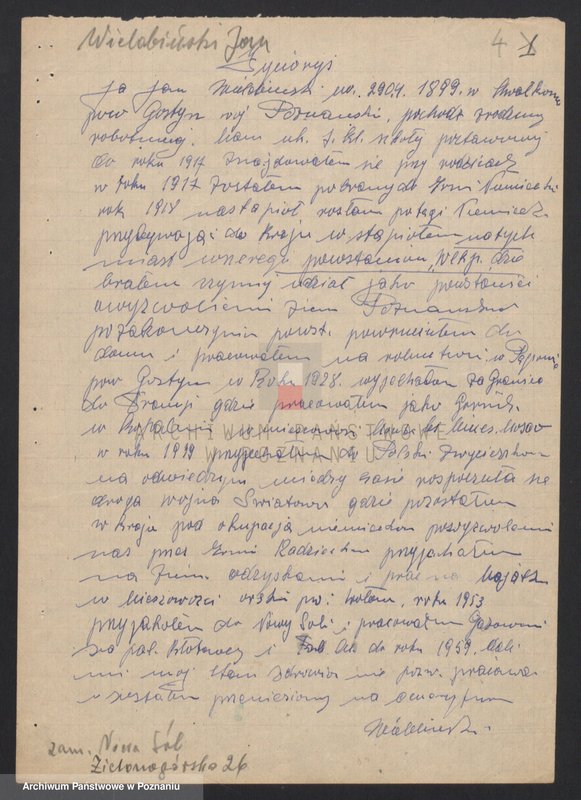 Wielabiński Jan
4 1
Życiorys
Ja Jan ur. 29.04. 1899. w
pow Gostyń woj Poznański, pochodzę z rodziny
robotniczej. Mam uk. 7. kl. szkoły postawowej
do roku 1917 znajdowałem się przy rodzicach
w roku 1917 zostałem pobrany do Armi Niemieckiej
rok 1918 nastąpiół rozłam potęgi Niemiec
przybywając do kraju wstąpiołem natych
miast w szeregi powstańców Wlkp. gdzie
brałem czynny udział jako powstaniec
o wyzwolenie Ziem Poznańskich
po zakończeniu powst. powróciłem do
domu i pracowałem na rolnictwie w
pow Gostyń w Roku 1928. wyjechałem za granice
do Francji gdzie pracowałem jako Górnik
w Kopalni w miejscowości
w roku 1919 przyjechałem do Polski
na odwiedziny między czasie rozpoczęła się
druga wojna Światowa gdzie pozostałem
w kraju pod okupacją niemiecką po wyzwoleniu
nas przez Armie Radziecką przyjechałem
na Ziem. odzyskane i prac na Majątku
w Miejscowości pow. Wołów, roku 1953
przyjechałem do Nowej Soli i pracowałem
za pal. i do roku 1959. dali
mi mój stan zdrowia nie pozw. pracować
i zostałem przeniesiony na emeryturę
zam. Nowa Sól
Zielonogórska 26
ARCHIWUM PAŃSTWOWE
W POZNANIU
Archiwum Państwowe w Poznaniu